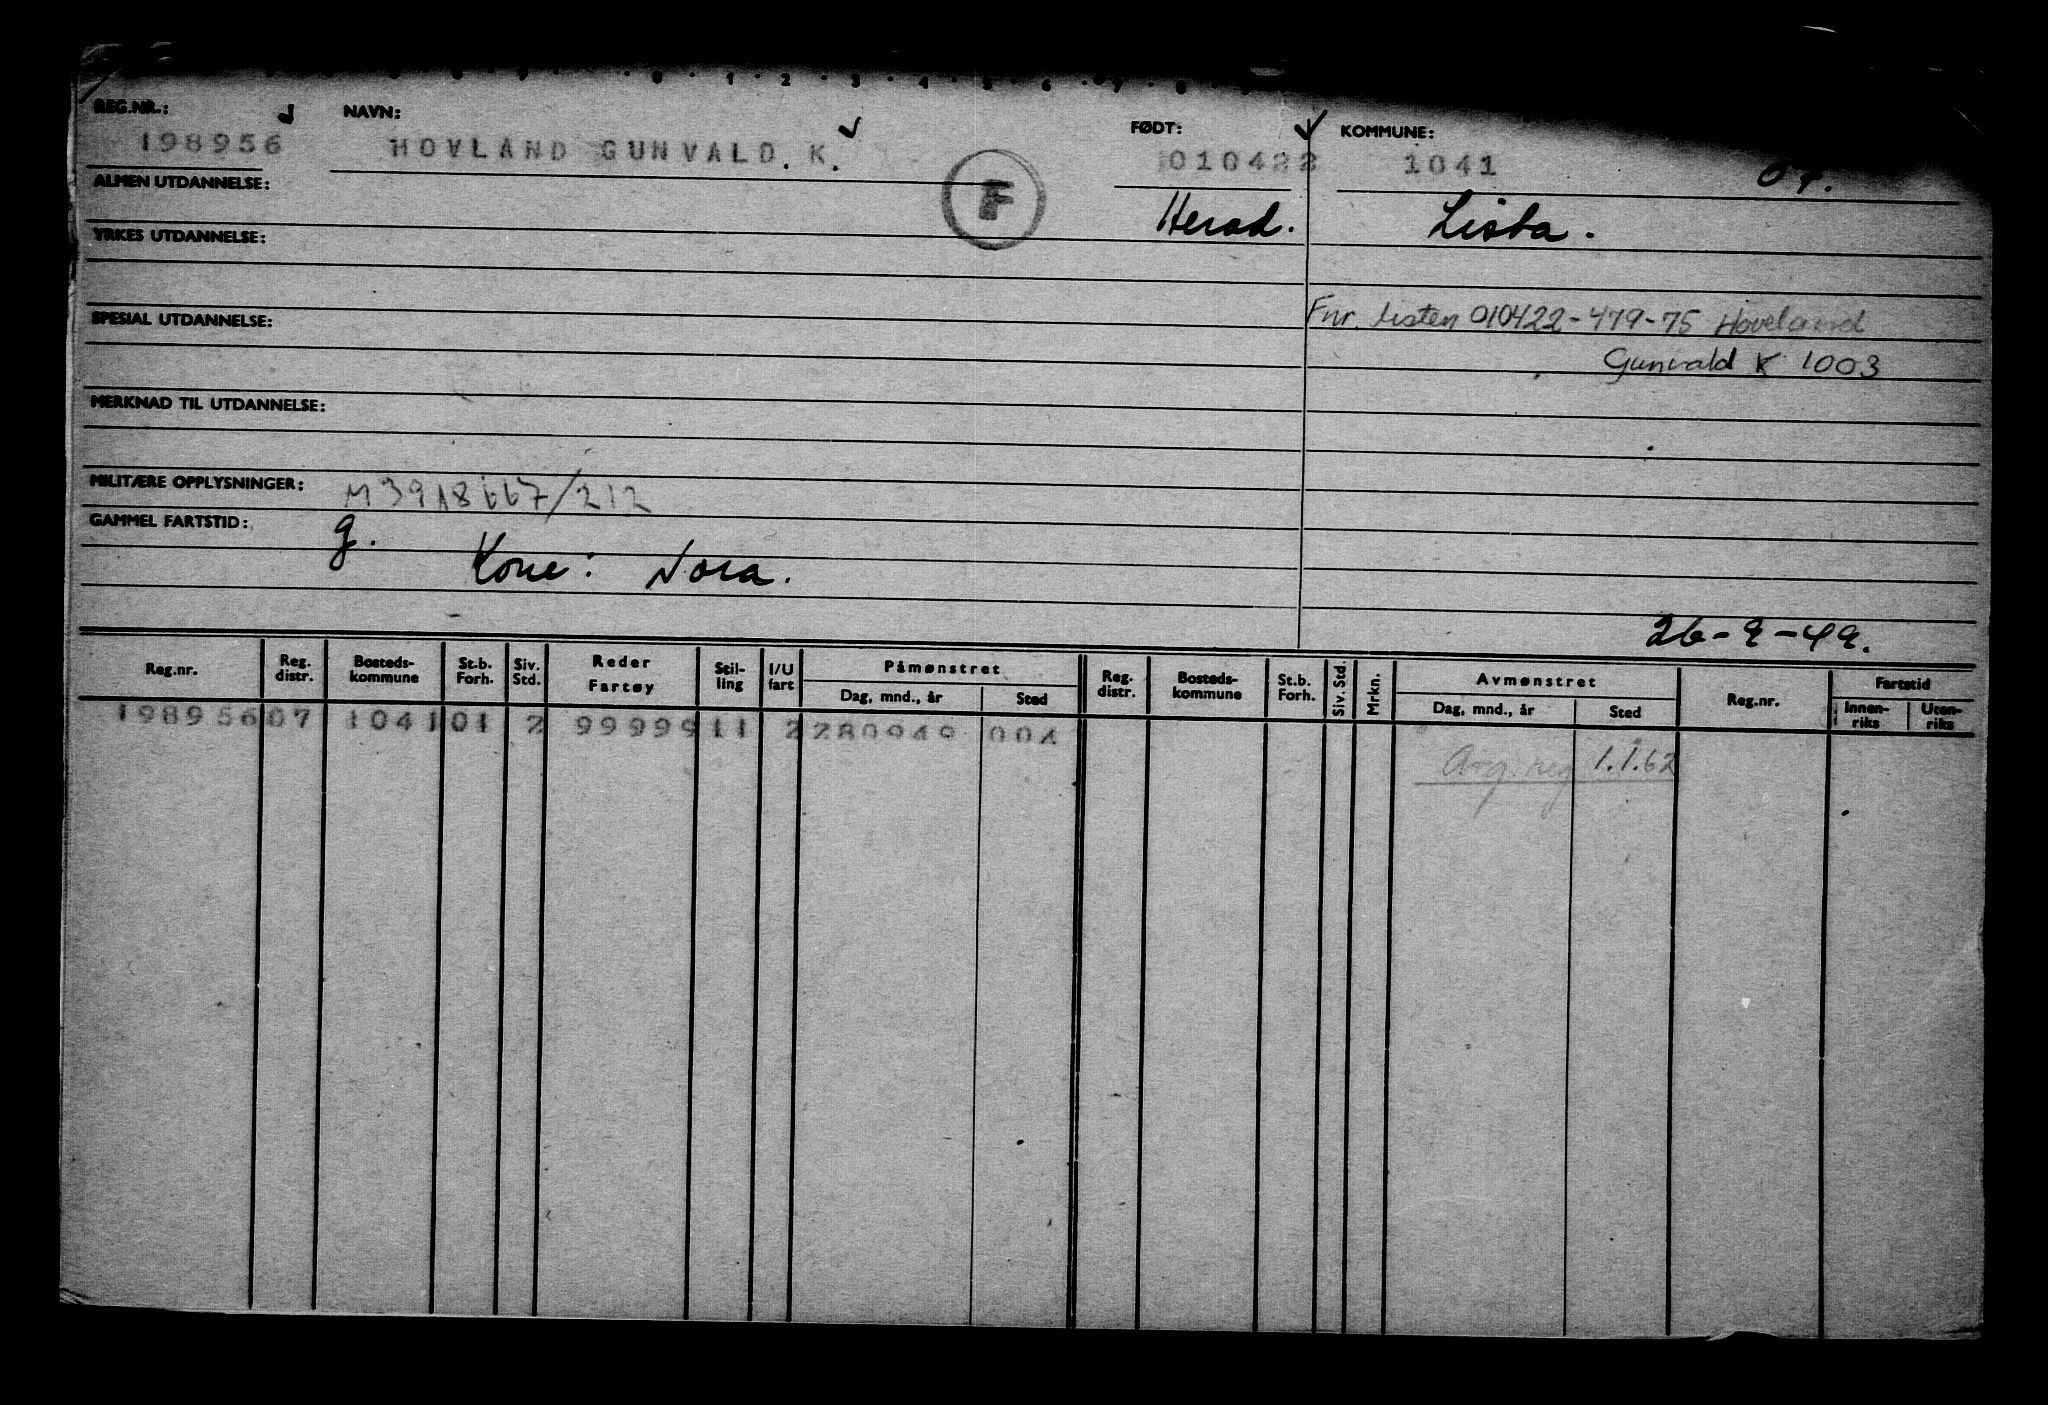 REG.NR.: NAVN: FØDT: KOMMUNE:
198956 HOVLAND GUNVALD. K. 010422 1041
ALMEN UTDANNELSE: F Herad. Lista.
YRKES UTDANNELSE:
Fnr. listen 010422-479-75 Hoveland
SPESIAL UTDANNELSE:
Gunvald K 1003
MERKNAD TIL UTDANNELSE:
MILITÆRE OPPLYSNINGER: M3918667/212
GAMMEL FARTSTID: g.
Kone: Nora.
26-9-49.
Reg.nr. Reg. distr. Bosteds-kommune St.b. Forh. Siv. Std. Reder Fartøy Stil-ling I/U fart Påmønstret Dag, mnd., år Sted Reg. distr. Bosteds-kommune St.b. Forh. Siv. Std. Mrkn. Avmønstret Dag, mnd., år Sted Reg.nr. Fartstid Innen-riks Uten-riks
198956 07 1041 01 2 99999 11 2 280949 004
reg 1.1.62